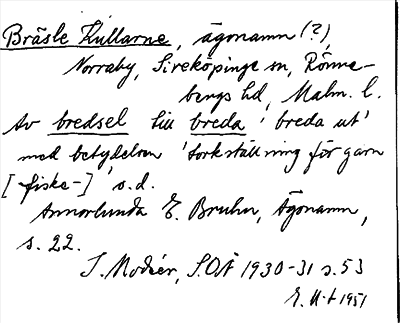 Bräsle Kullarne, ägonamn (?),
Norraby, Sireköpinge sn, Rönne-
bergs hd, Malm. l.
Av bredsel till breda 'breda ut'
med betydelsen 'torkställning för garn
[fiske-]' o.d.
Annorlunda E. Bruhn, Ägonamn,
s. 22.
I. Modéer, SOÅ 1930-31 s. 53
1951